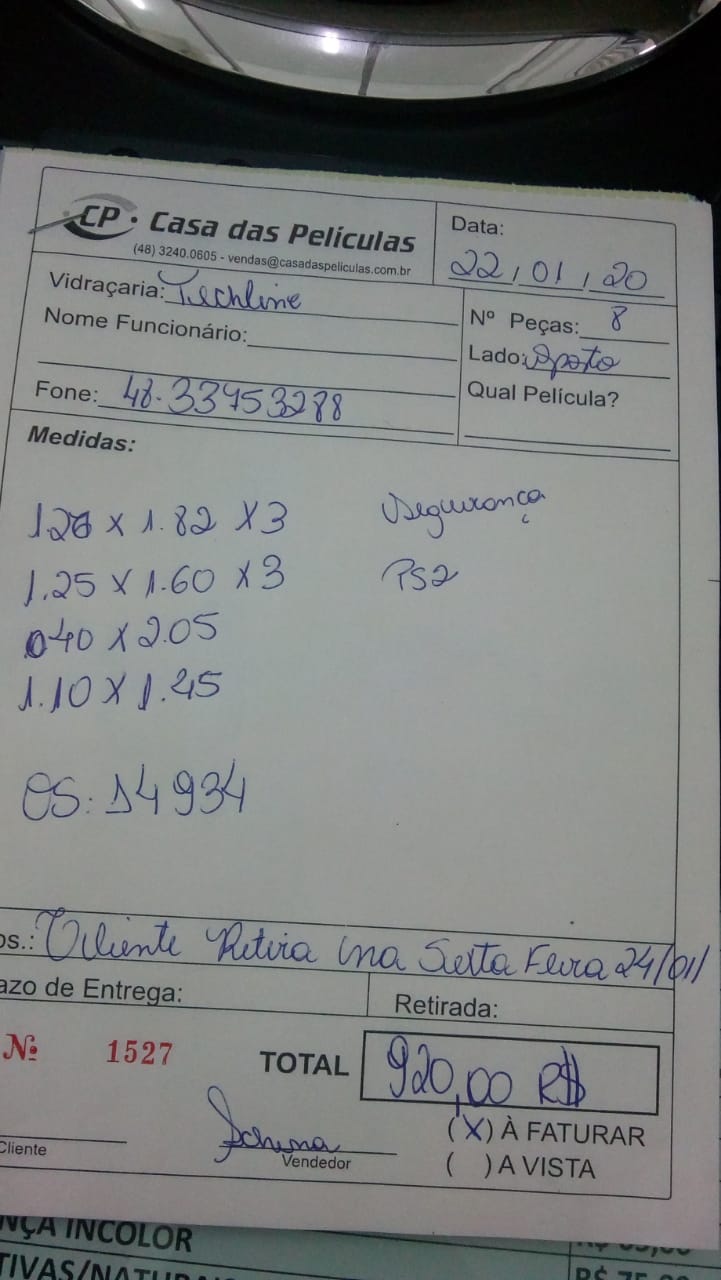 CP · Casa das Películas
(48) 3240.0605 - vendas@casadaspeliculas.com.br
Data:
22, 01, 20
Vidraçaria: Techline
Nome Funcionário:
Fone: 48.33453288
Nº Peças: 8
Lado: Oposto
Qual Película?
Medidas:
1.26 x 1.82 x3 Segurança
1.25 x 1.60 x3 PS2
040 x 2.05
1.10 x 1.45
OS: 14934
os.: Cliente Retira na Sexta Feira 24/01/
azo de Entrega:
Retirada:
Nº 1527
TOTAL 920,00 R$
(X) À FATURAR
( ) A VISTA
Cliente
Vendedor
NÇA INCOLOR
R$ 75,00